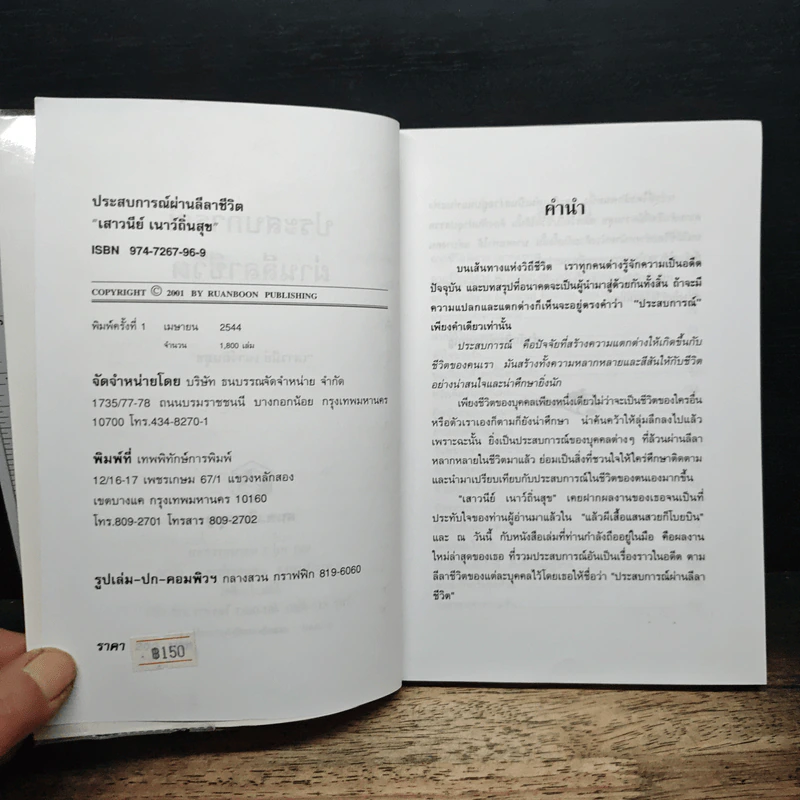 ประสบการณ์ผ่านลีลาชีวิต
"เสาวนีย์ เนาว์ถิ่นสุข"
ISBN 974-7267-96-9
COPYRIGHT © 2001 BY RUANBOON PUBLISHING
พิมพ์ครั้งที่ 1 เมษายน 2544
จำนวน 1,800 เล่ม
จัดจำหน่ายโดย บริษัท ธนบรรณจัดจำหน่าย จำกัด
1735/77-78 ถนนบรมราชชนนี บางกอกน้อย กรุงเทพมหานคร
10700 โทร.434-8270-1
พิมพ์ที่ เทพพิทักษ์การพิมพ์
12/16-17 เพชรเกษม 67/1 แขวงหลักสอง
เขตบางแค กรุงเทพมหานคร 10160
โทร.809-2701 โทรสาร 809-2702
รูปเล่ม-ปก-คอมพิวฯ กลางสวน กราฟฟิก 819-6060
ราคา ฿150
คำนำ
บนเส้นทางแห่งวิถีชีวิต เราทุกคนต่างรู้จักความเป็นอดีต
ปัจจุบัน และบทสรุปที่อนาคตจะเป็นผู้นำมาสู่ด้วยกันทั้งสิ้น ถ้าจะมี
ความแปลกและแตกต่างก็เห็นจะอยู่ตรงคำว่า "ประสบการณ์"
เพียงคำเดียวเท่านั้น
ประสบการณ์ คือปัจจัยที่สร้างความแตกต่างให้เกิดขึ้นกับ
ชีวิตของคนเรา มันสร้างทั้งความหลากหลายและสีสันให้กับชีวิต
อย่างน่าสนใจและน่าศึกษายิ่งนัก
เพียงชีวิตของบุคคลเพียงหนึ่งเดียวไม่ว่าจะเป็นชีวิตของใครอื่น
หรือตัวเราเองก็ตามก็ยังน่าศึกษา น่าค้นคว้าให้ลุ่มลึกลงไปแล้ว
เพราะฉะนั้น ยิ่งเป็นประสบการณ์ของบุคคลต่างๆ ที่ล้วนผ่านลีลา
หลากหลายในชีวิตมาแล้ว ย่อมเป็นสิ่งที่ชวนให้ใคร่ศึกษาติดตาม
และนำมาเปรียบเทียบกับประสบการณ์ในชีวิตของตนเองมากขึ้น
"เสาวนีย์ เนาว์ถิ่นสุข" เคยฝากผลงานของเธอจนเป็นที่
ประทับใจของท่านผู้อ่านมาแล้วใน "แล้วผีเสื้อแสนสวยก็โบยบิน"
และ ณ วันนี้ กับหนังสือเล่มที่ท่านกำลังถืออยู่ในมือ คือผลงาน
ใหม่ล่าสุดของเธอ ที่รวมประสบการณ์อันเป็นเรื่องราวในอดีต ตาม
ลีลาชีวิตของแต่ละบุคคลไว้โดยเธอให้ชื่อว่า "ประสบการณ์ผ่านลีลา
ชีวิต"